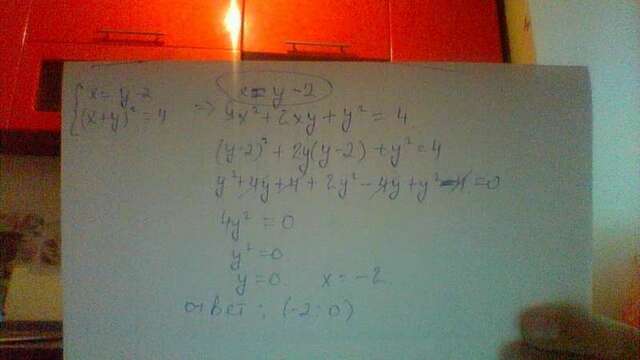 { x = y-2
(x+y)² = 4
x=y-2
=> x²+2xy+y² = 4
(y-2)²+2y(y-2)+y²=4
y²+4y+4+2y²-4y+y²-4=0
4y² = 0
y²=0
y=0 x=-2
ответ: (-2;0)